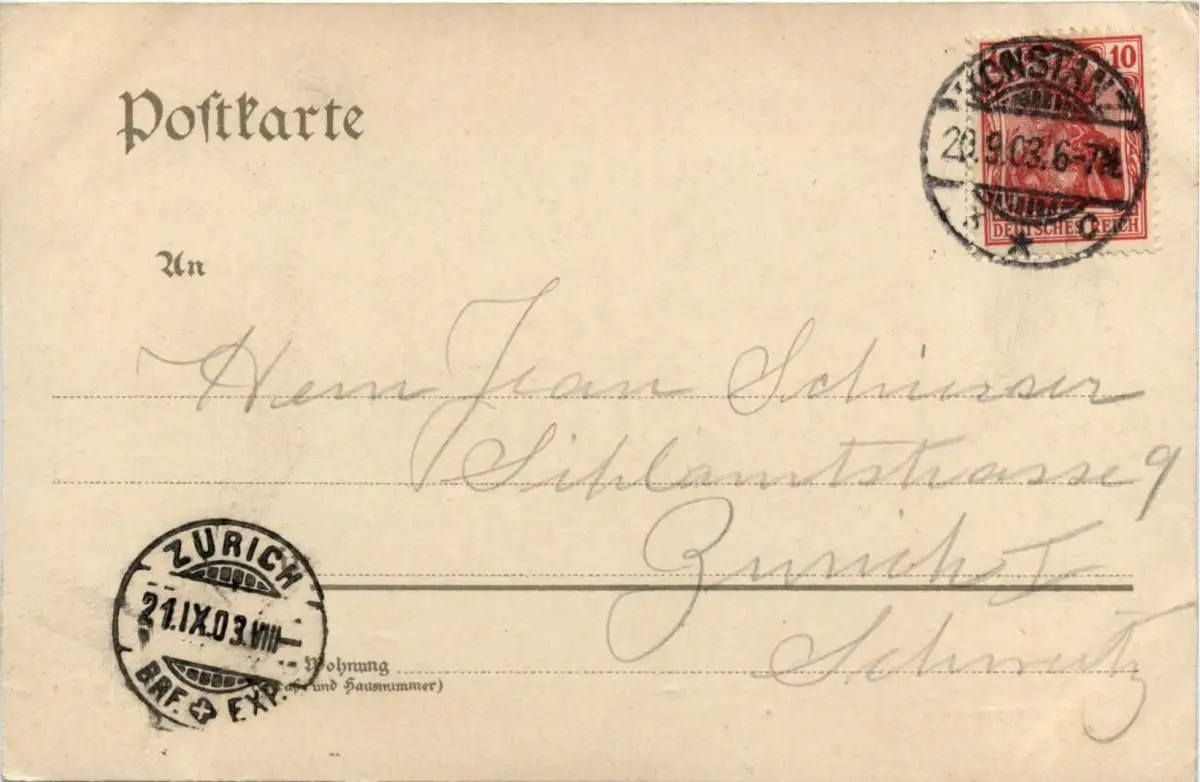 Postkarte
10
KONSTANZ
20.9.03. 6-7N.
* c
DEUTSCHES REICH
An
Herrn Jean
Sihlamtstrasse 9
Zürich I
Schweiz
ZÜRICH
21.IX.03.VIII
BRF. EXP.
Wohnung
und Hausnummer)